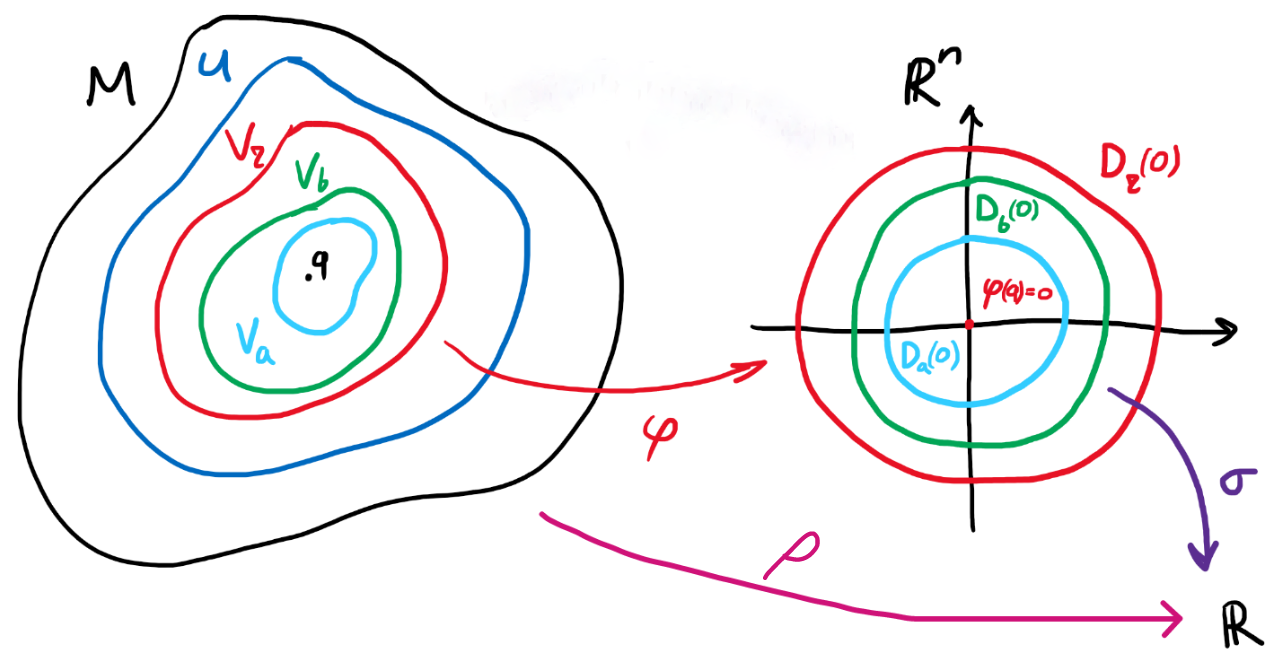 M
U
V_r
V_b
.q
V_a
φ
ℝⁿ
D_r(0)
D_b(0)
φ(q)=0
D_a(0)
σ
ρ
ℝ